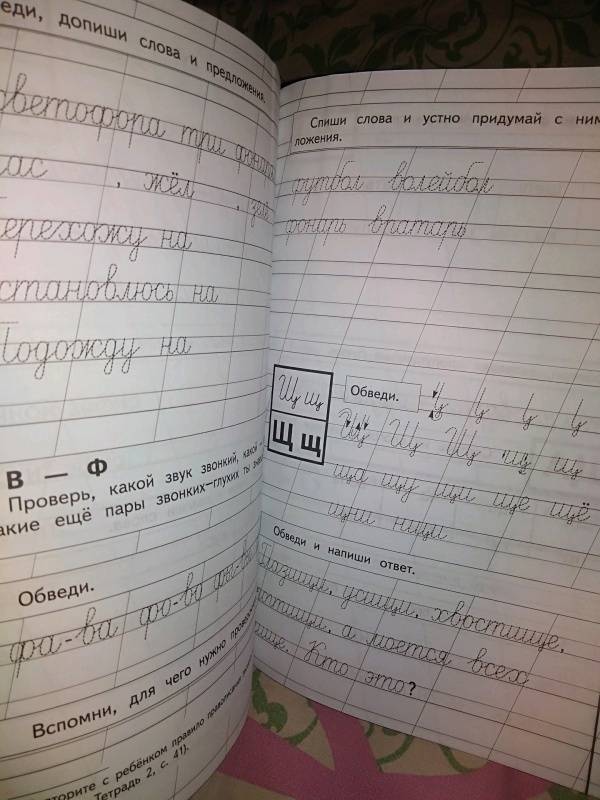 еди, допиши слова и предложения.
ветофора три фонаря
ас , жёл , зелё
ерехожу на
становлюсь на
Подожду на
В — Ф
Проверь, какой звук звонкий, какой —
акие ещё пары звонких—глухих ты зна
Обведи.
фа-ва фо-во фы-вы
Вспомни, для чего нужно
торите с ребёнком правило правописания
Тетрадь 2, с. 41).
Спиши слова и устно придумай с ним
ложения.
футбол волейбол
фонарь вратарь
Щ щ
Щ щ
Обведи.
Щ Щ Щ щ щ
ща щу щи ще щё
Обведи и напиши ответ.
Глазищи, усищи, хвостище,
а моется всех
ище. Кто это?